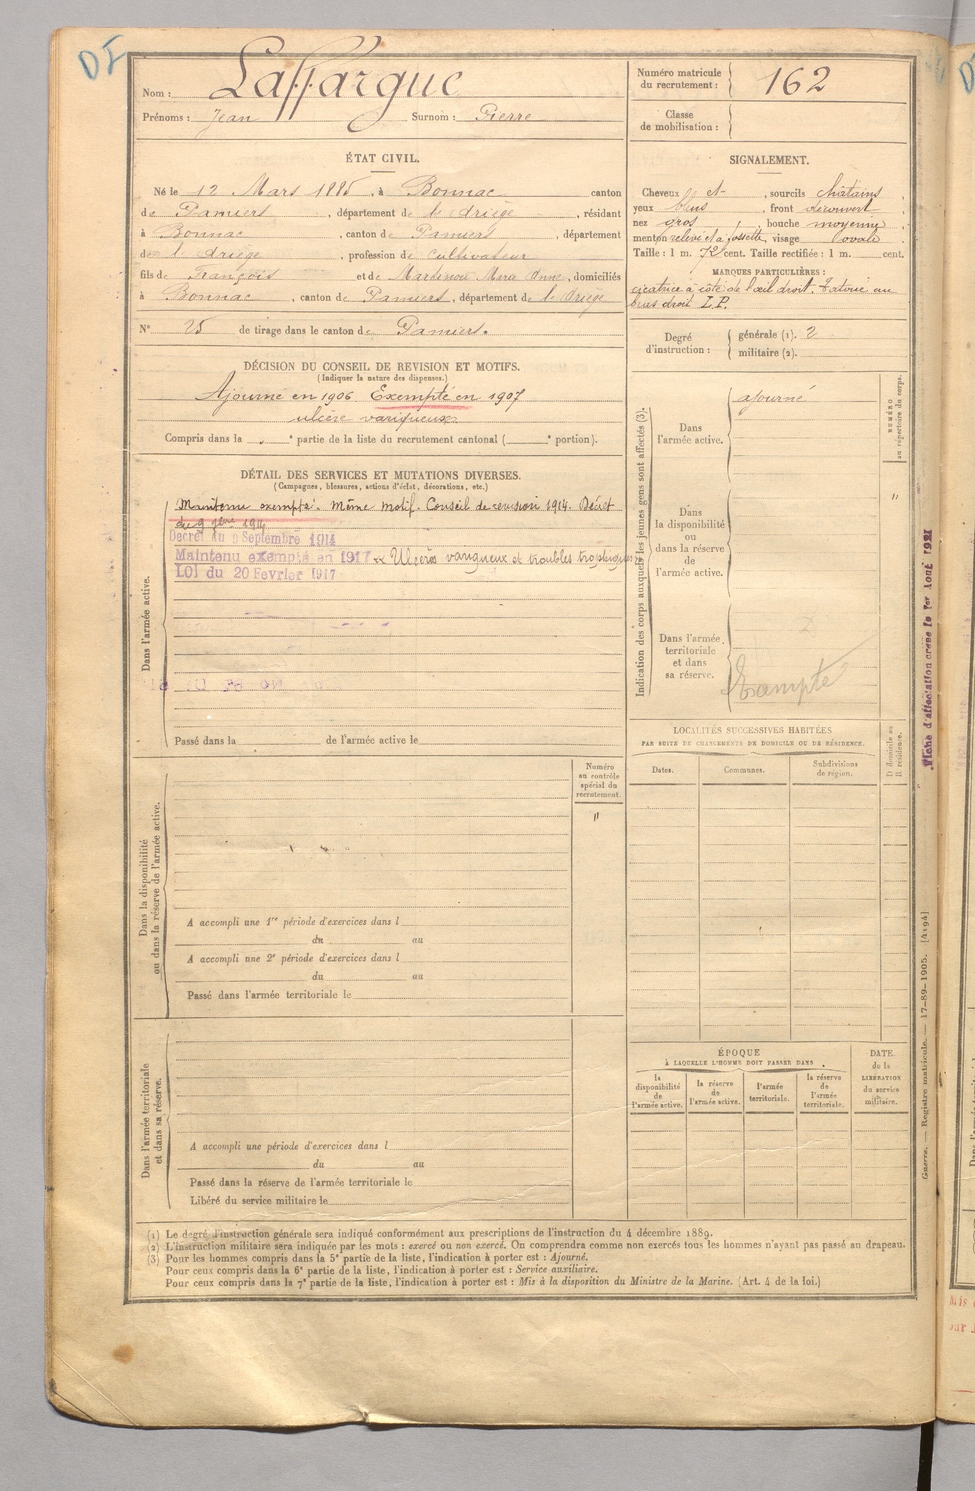 DI
Nom : Laffargue
Prénoms : Jean Surnom : Pierre
Numéro matricule du recrutement : 162
Classe de mobilisation :
ÉTAT CIVIL.
Né le 12 Mars 1885, à Bonnac canton
de Pamiers, département de l'Ariège, résidant
à Bonnac, canton de Pamiers, département
de l'Ariège, profession de cultivateur
fils de François et de Marie Anne, domiciliés
à Bonnac, canton de Pamiers, département de l'Ariège
N° 25 de tirage dans le canton de Pamiers.
SIGNALEMENT.
Cheveux et sourcils châtains
yeux bleus, front découvert
nez gros, bouche moyenne
menton relevé et à fossette, visage ovale
Taille : 1 m. 72 cent. Taille rectifiée : 1 m. cent.
MARQUES PARTICULIÈRES :
cicatrice à côté de l'œil droit. Tatoué au
bras droit L.P.
Degré d'instruction : générale (1). 2
militaire (2).
DÉCISION DU CONSEIL DE REVISION ET MOTIFS.
(Indiquer la nature des dispenses.)
Ajourné en 1906. Exempté en 1907
ulcère variqueux.
Compris dans la " partie de la liste du recrutement cantonal ( portion).
DÉTAIL DES SERVICES ET MUTATIONS DIVERSES.
(Campagnes, blessures, actions d'éclat, décorations, etc.)
Dans l'armée active.
Maintenu exempté. Même motif. Conseil de révision 1914. Décret
du 9 7bre 1914
Décret du 9 Septembre 1914
Maintenu exempté en 1917 Ulcère variqueux et troubles trophiques
LOI du 20 Fevrier 1917
Passé dans la de l'armée active le
Indication des corps auxquels les jeunes gens sont affectés (3).
Dans l'armée active.
ajourné
Dans la disponibilité ou dans la réserve de l'armée active.
Dans l'armée territoriale et dans sa réserve.
Exempté
NUMÉRO au répertoire du corps.
"
LOCALITÉS SUCCESSIVES HABITÉES
PAR SUITE DE CHANGEMENTS DE DOMICILE OU DE RÉSIDENCE.
Dates. Communes. Subdivisions de région.
D domicile ou R résidence.
Dans la disponibilité ou dans la réserve de l'armée active.
Numéro au contrôle spécial du recrutement.
"
A accompli une 1re période d'exercices dans l
du au
A accompli une 2e période d'exercices dans l
du au
Passé dans l'armée territoriale le
Dans l'armée territoriale et dans sa réserve.
A accompli une période d'exercices dans l
du au
Passé dans la réserve de l'armée territoriale le
Libéré du service militaire le
ÉPOQUE
À LAQUELLE L'HOMME DOIT PASSER DANS
la disponibilité de l'armée active.
la réserve de l'armée active.
l'armée territoriale.
la réserve de l'armée territoriale.
DATE de la LIBÉRATION du service militaire.
(1) Le degré d'instruction générale sera indiqué conformément aux prescriptions de l'instruction du 4 décembre 1889.
(2) L'instruction militaire sera indiquée par les mots : exercé ou non exercé. On comprendra comme non exercés tous les hommes n'ayant pas passé au drapeau.
(3) Pour les hommes compris dans la 5e partie de la liste, l'indication à porter est : Ajourné.
Pour ceux compris dans la 6e partie de la liste, l'indication à porter est : Service auxiliaire.
Pour ceux compris dans la 7e partie de la liste, l'indication à porter est : Mis à la disposition du Ministre de la Marine. (Art. 4 de la loi.)
Fiche d'affectation créée le 1er Août 1921
Guerre. — Registre matricule. — 17-89-1905. [4194]